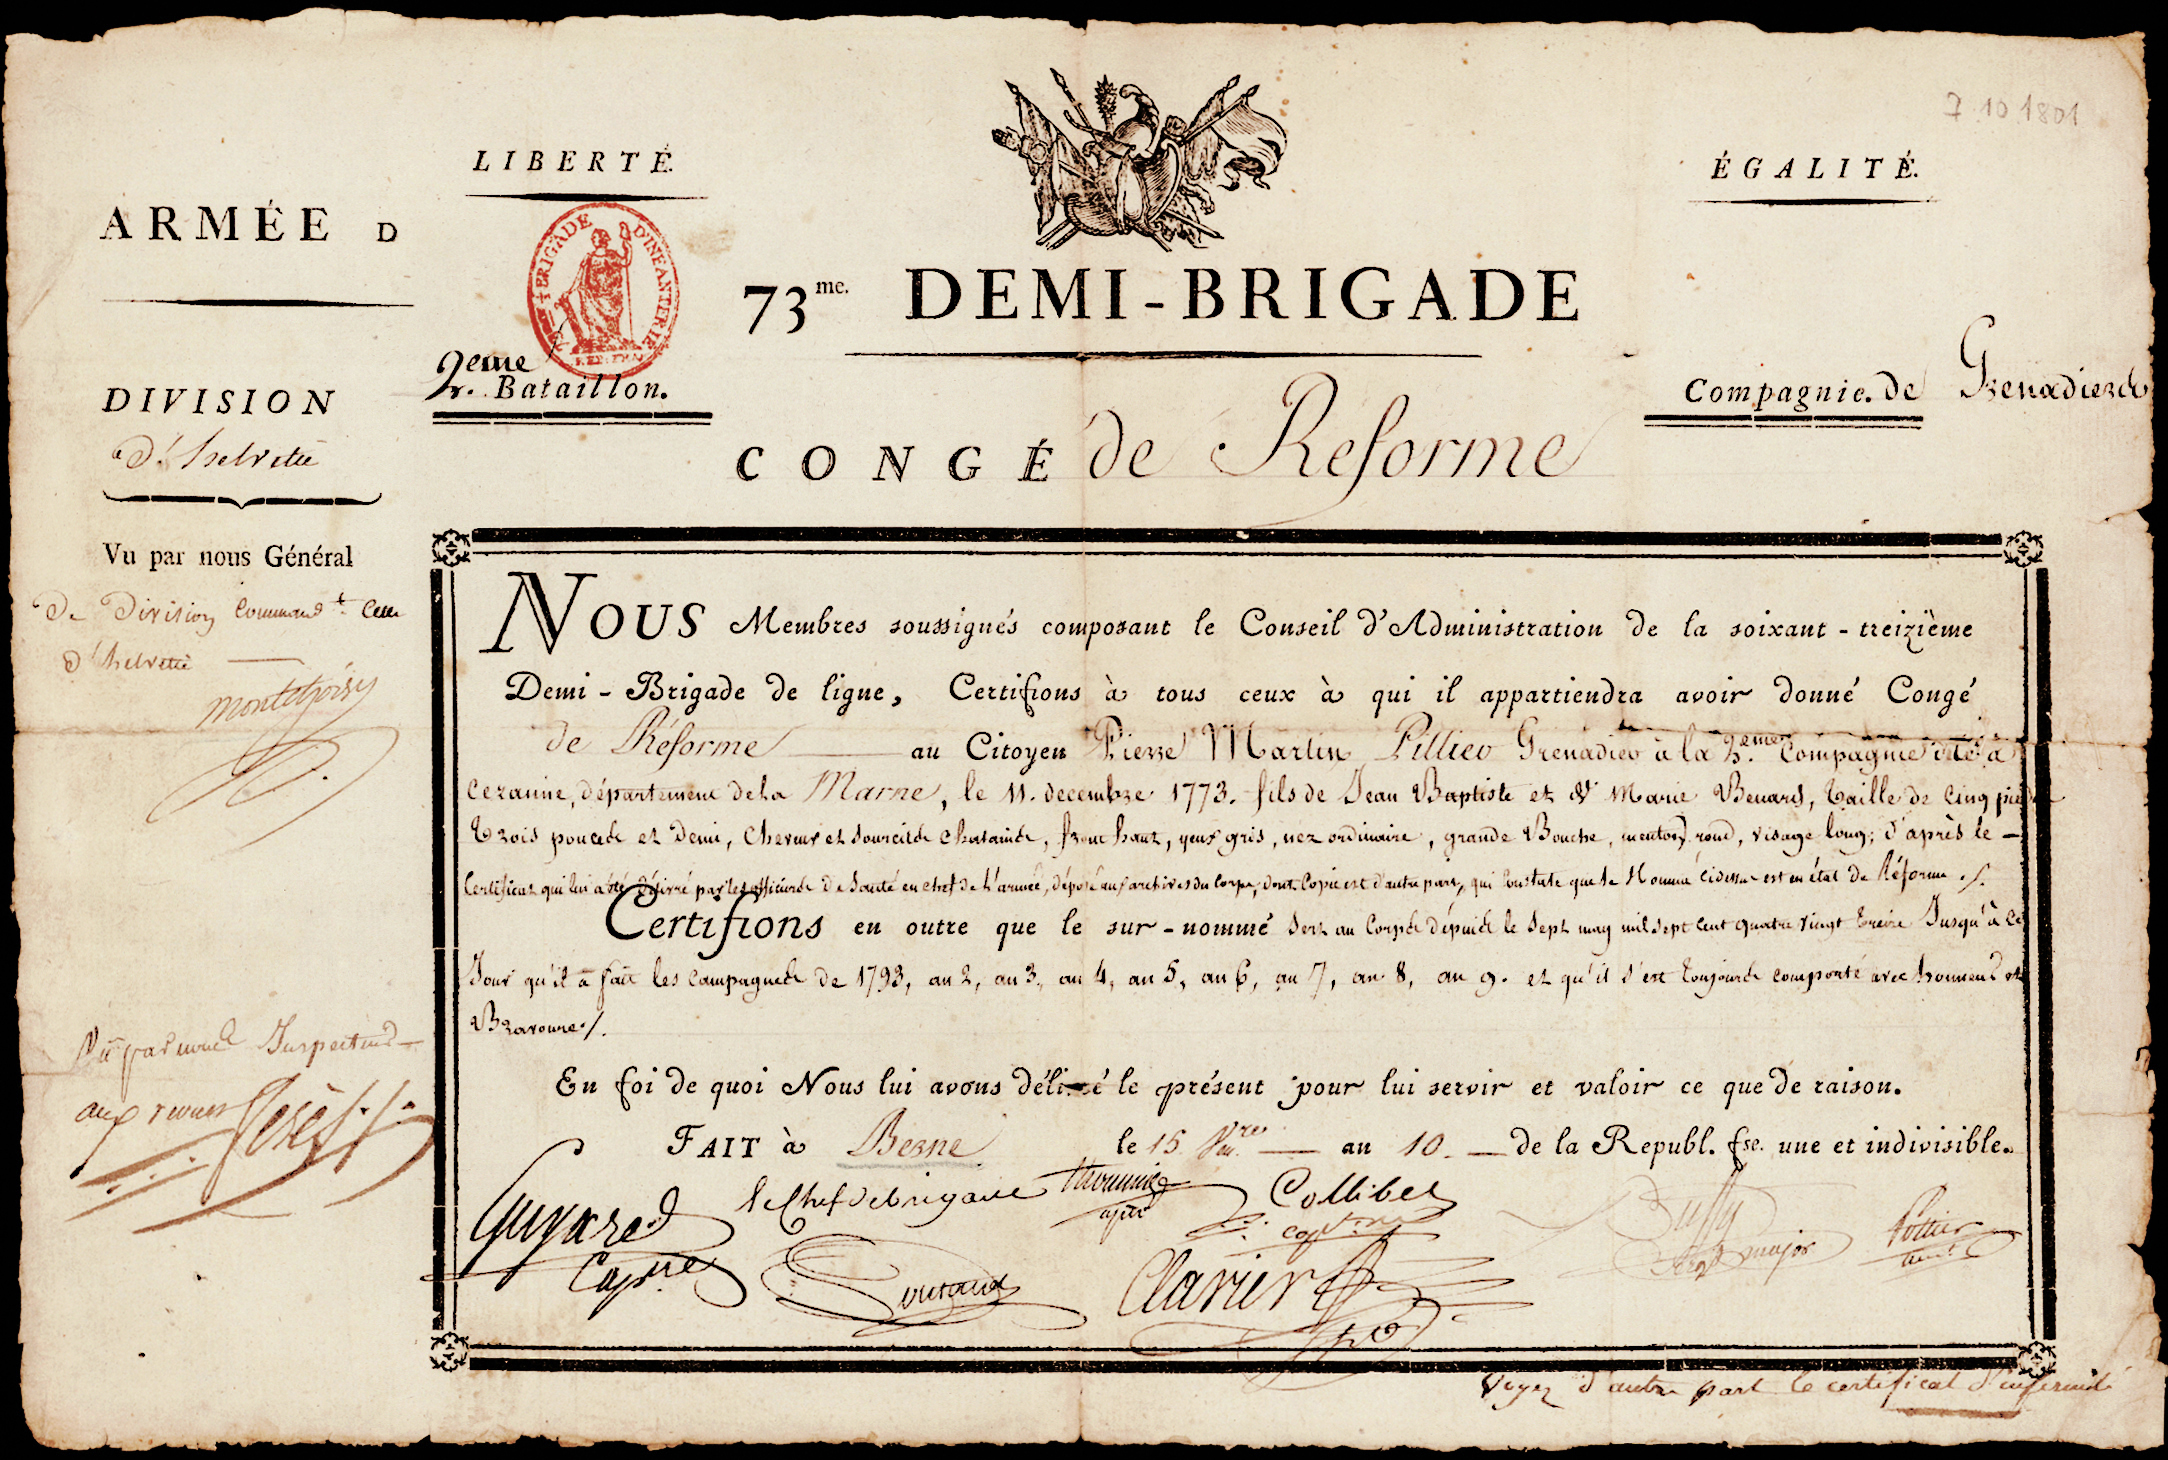 7 10 1801
LIBERTÉ.
ÉGALITÉ.
ARMÉE D
BRIGADE D'INFANTERIE
73me. DEMI-BRIGADE
2eme
2e. Bataillon.
Compagnie. de Grenadiers
DIVISION
d'helvetie
CONGÉ de Reforme
Vu par nous Général
De Division Commandt. Celle
d'helvetie
Montchoisy
NOUS Membres soussignés composant le Conseil d'Administration de la soixant-treizième
Demi-Brigade de ligne, Certifions à tous ceux à qui il appartiendra avoir donné Congé
de Réforme au Citoyen Pierre Martin Pillier Grenadier à la 2eme. Compagnie né à
Cezanne, département de la Marne, le 11. decembre 1773. fils de Jean Baptiste et de Marie Benard, taille de Cinq pieds
trois pouces et Demi, Cheveux et Sourcils chatains, front haut, yeux gris, nez ordinaire, grande Bouche, menton rond, visage long; d'après le
Certificat qui lui a été délivré par les officiers de Santé en chef de l'armée, déposé aux archives du Corps, dont Copie est d'autre part, qui Constate que le Nommé cidessus est en état de Réforme ./.
Certifions en outre que le sur-nommé Sert au Corps depuis le Sept may mil sept cent quatre vingt treize Jusqu'à ce
Jour qu'il a fait les Campagnes de 1793, an 2, an 3, an 4, an 5, an 6, an 7, an 8, an 9. et qu'il s'est toujours comporté avec honneur et
Bravoure./.
Vu par nous Inspecteur
aux revues
En foi de quoi Nous lui avons délivré le présent pour lui servir et valoir ce que de raison.
FAIT à Berne le 15 Vre an 10. de la Republ. fse. une et indivisible.
Guyard
Capne
le Chef de brigade
Collibet
capne
Clavier
major
Pottier
Voyez d'autre part le certificat d'infirmité